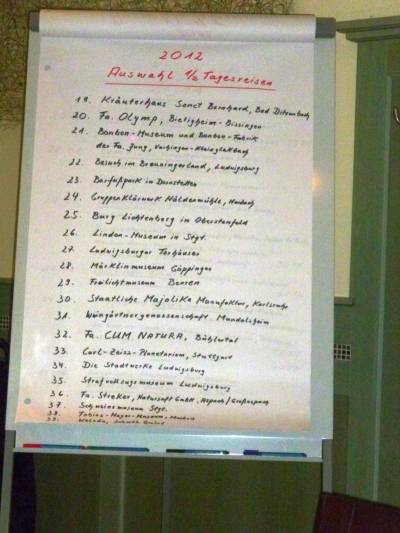 2012
Auswahl 1/2 Tagesreisen
19. Kräuterhaus Sanct Bernhard, Bad Ditzenbach
20. Fa. Olymp, Bietigheim-Bissingen
21. Bonbon-Museum und Bonbon-Fabrik
der Fa. Jung, Vaihingen-Kleinglattbach
22. Besuch im Breuningerland, Ludwigsburg
23. Barfußpark in Dornstetten
24. Gruppenklärwerk Häldenmühle, Marbach
25. Burg Lichtenberg in Oberstenfeld
26. Linden-Museum in Stgt.
27. Ludwigsburger Torhäuser
28. Märklinmuseum Göppingen
29. Freilichtmuseum Beuren
30. Staatliche Majolika Manufaktur, Karlsruhe
31. Weingärtnergenossenschaft Mundelsheim
32. Fa. CUM NATURA, Bühlertal
33. Carl-Zeiss-Planetarium, Stuttgart
34. Die Stadtwerke Ludwigsburg
35. Strafvollzugsmuseum Ludwigsburg
36. Fa. Streker, Natursaft GmbH, Aspach/Großaspach
37. Schweinemuseum Stgt.
38. Tobias-Mayer-Museum, Marbach
39.